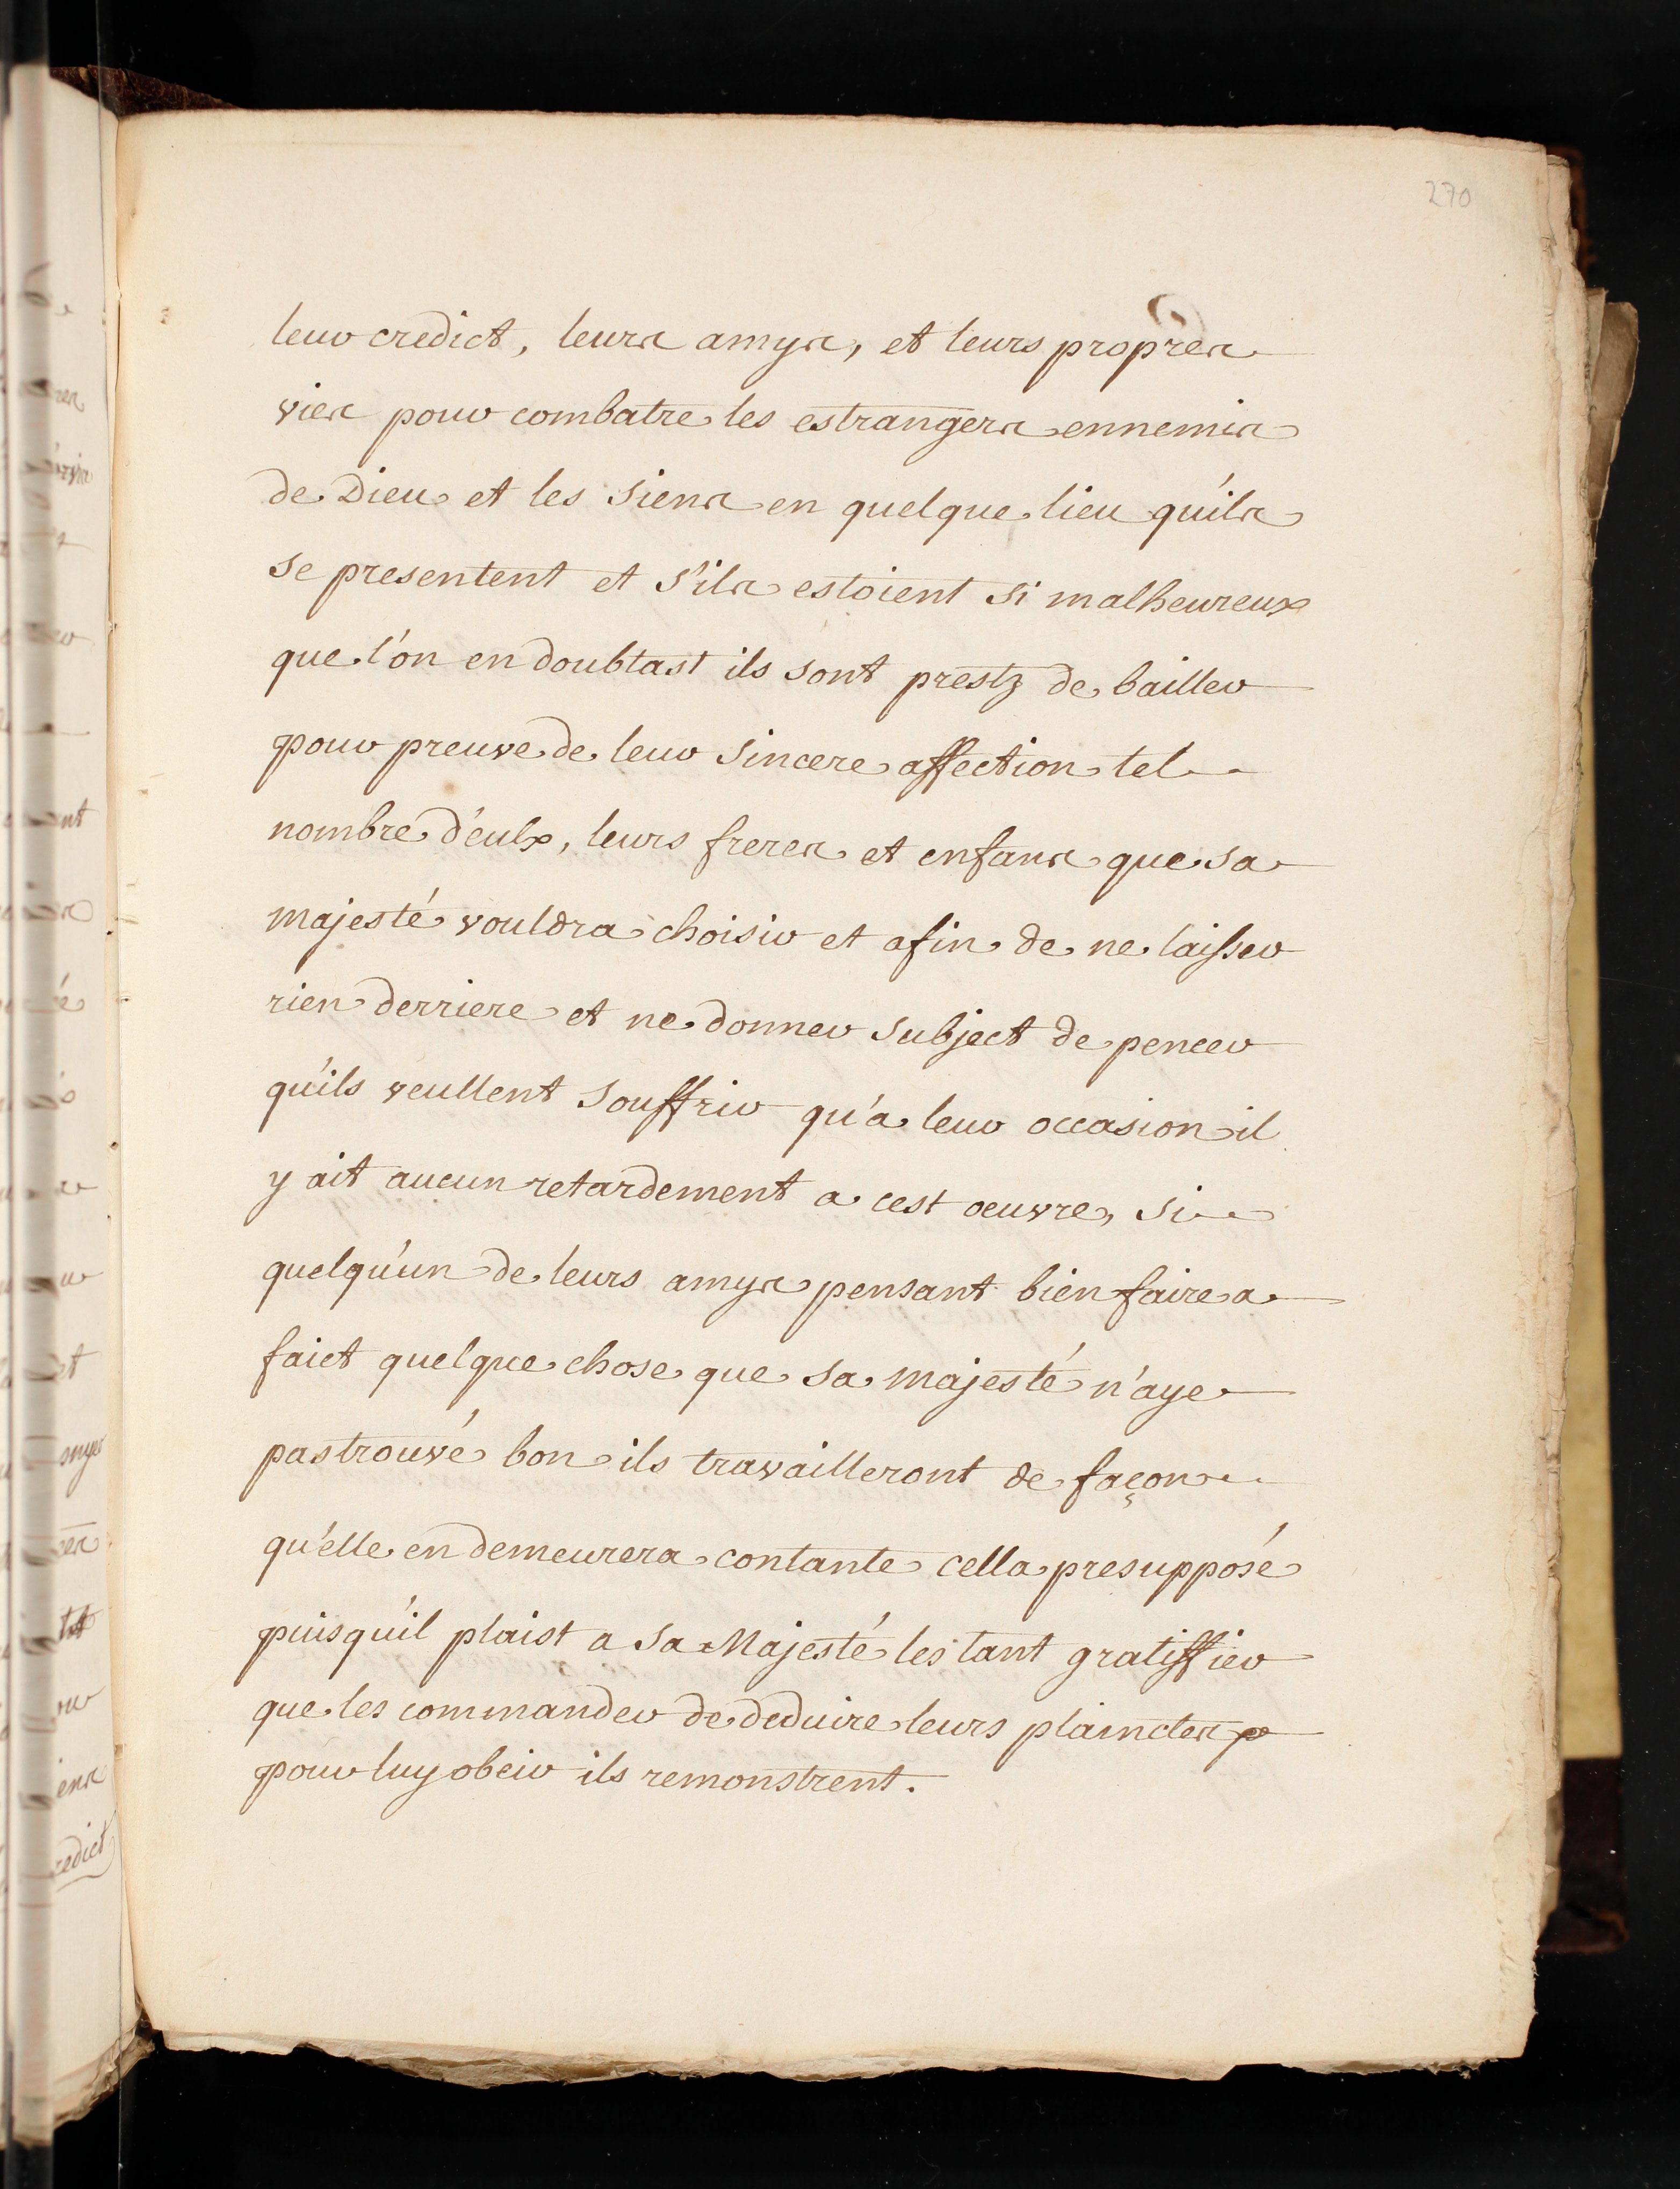 270
leur credict, leurs amys, et leurs propres
vies pour combatre les estrangers ennemis
de Dieu et les siens en quelque lieu qu'ils
se presentent et s'ils estoient si malheureux
que l'on en doubtast ils sont prestz de bailler
pour preuve de leur sincere affection tel
nombre d'eulx, leurs freres et enfans que sa
majesté vouldra choisir et afin de ne laisser
rien derriere et ne donner subject de pencer
qu'ils veullent souffrir qu'a leur occasion il
y ait aucun retardement a cest oeuvre, si
quelqu'un de leurs amys pensant bien faire a
faict quelque chose que sa majesté n'aye
pas trouvé bon ils travailleront de façon
qu'elle en demeurera contante cella presupposé
puisqu'il plaist a sa Majesté les tant gratiffier
que les commander de deduire leurs plainctes
pour luy obeir ils remonstrent.